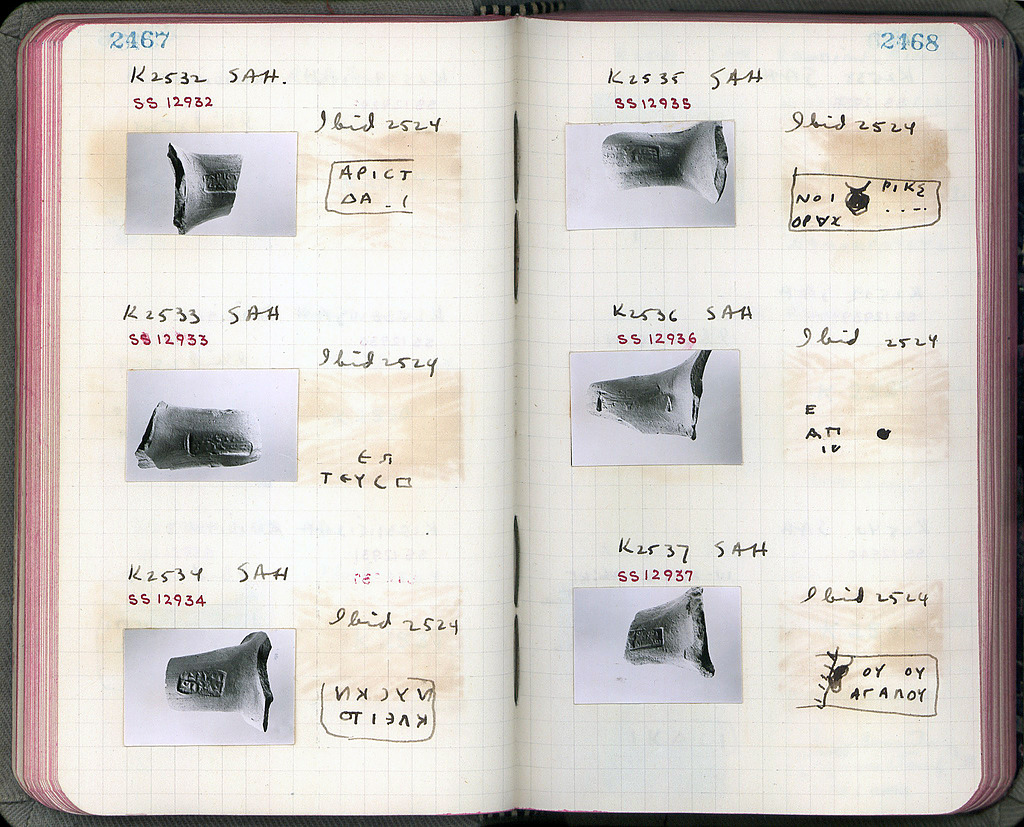 2467
K2532 SAH.
SS 12932
Ibid 2524
ΑΡΙCΤ
ΔΑ . Ι
K2533 SAH
SS 12933
Ibid 2524
ΤЄΥC
K2534 SAH
SS 12934
Ibid 2524
2468
K2535 SAH
SS 12935
Ibid 2524
ΝΟΙ ΡΙΚΣ
K2536 SAH
SS 12936
Ibid 2524
Ε
ΑΠ
ΙΥ
K2537 SAH
SS 12937
Ibid 2524
ΟΥ ΟΥ
ΑΓΑΠΟΥ